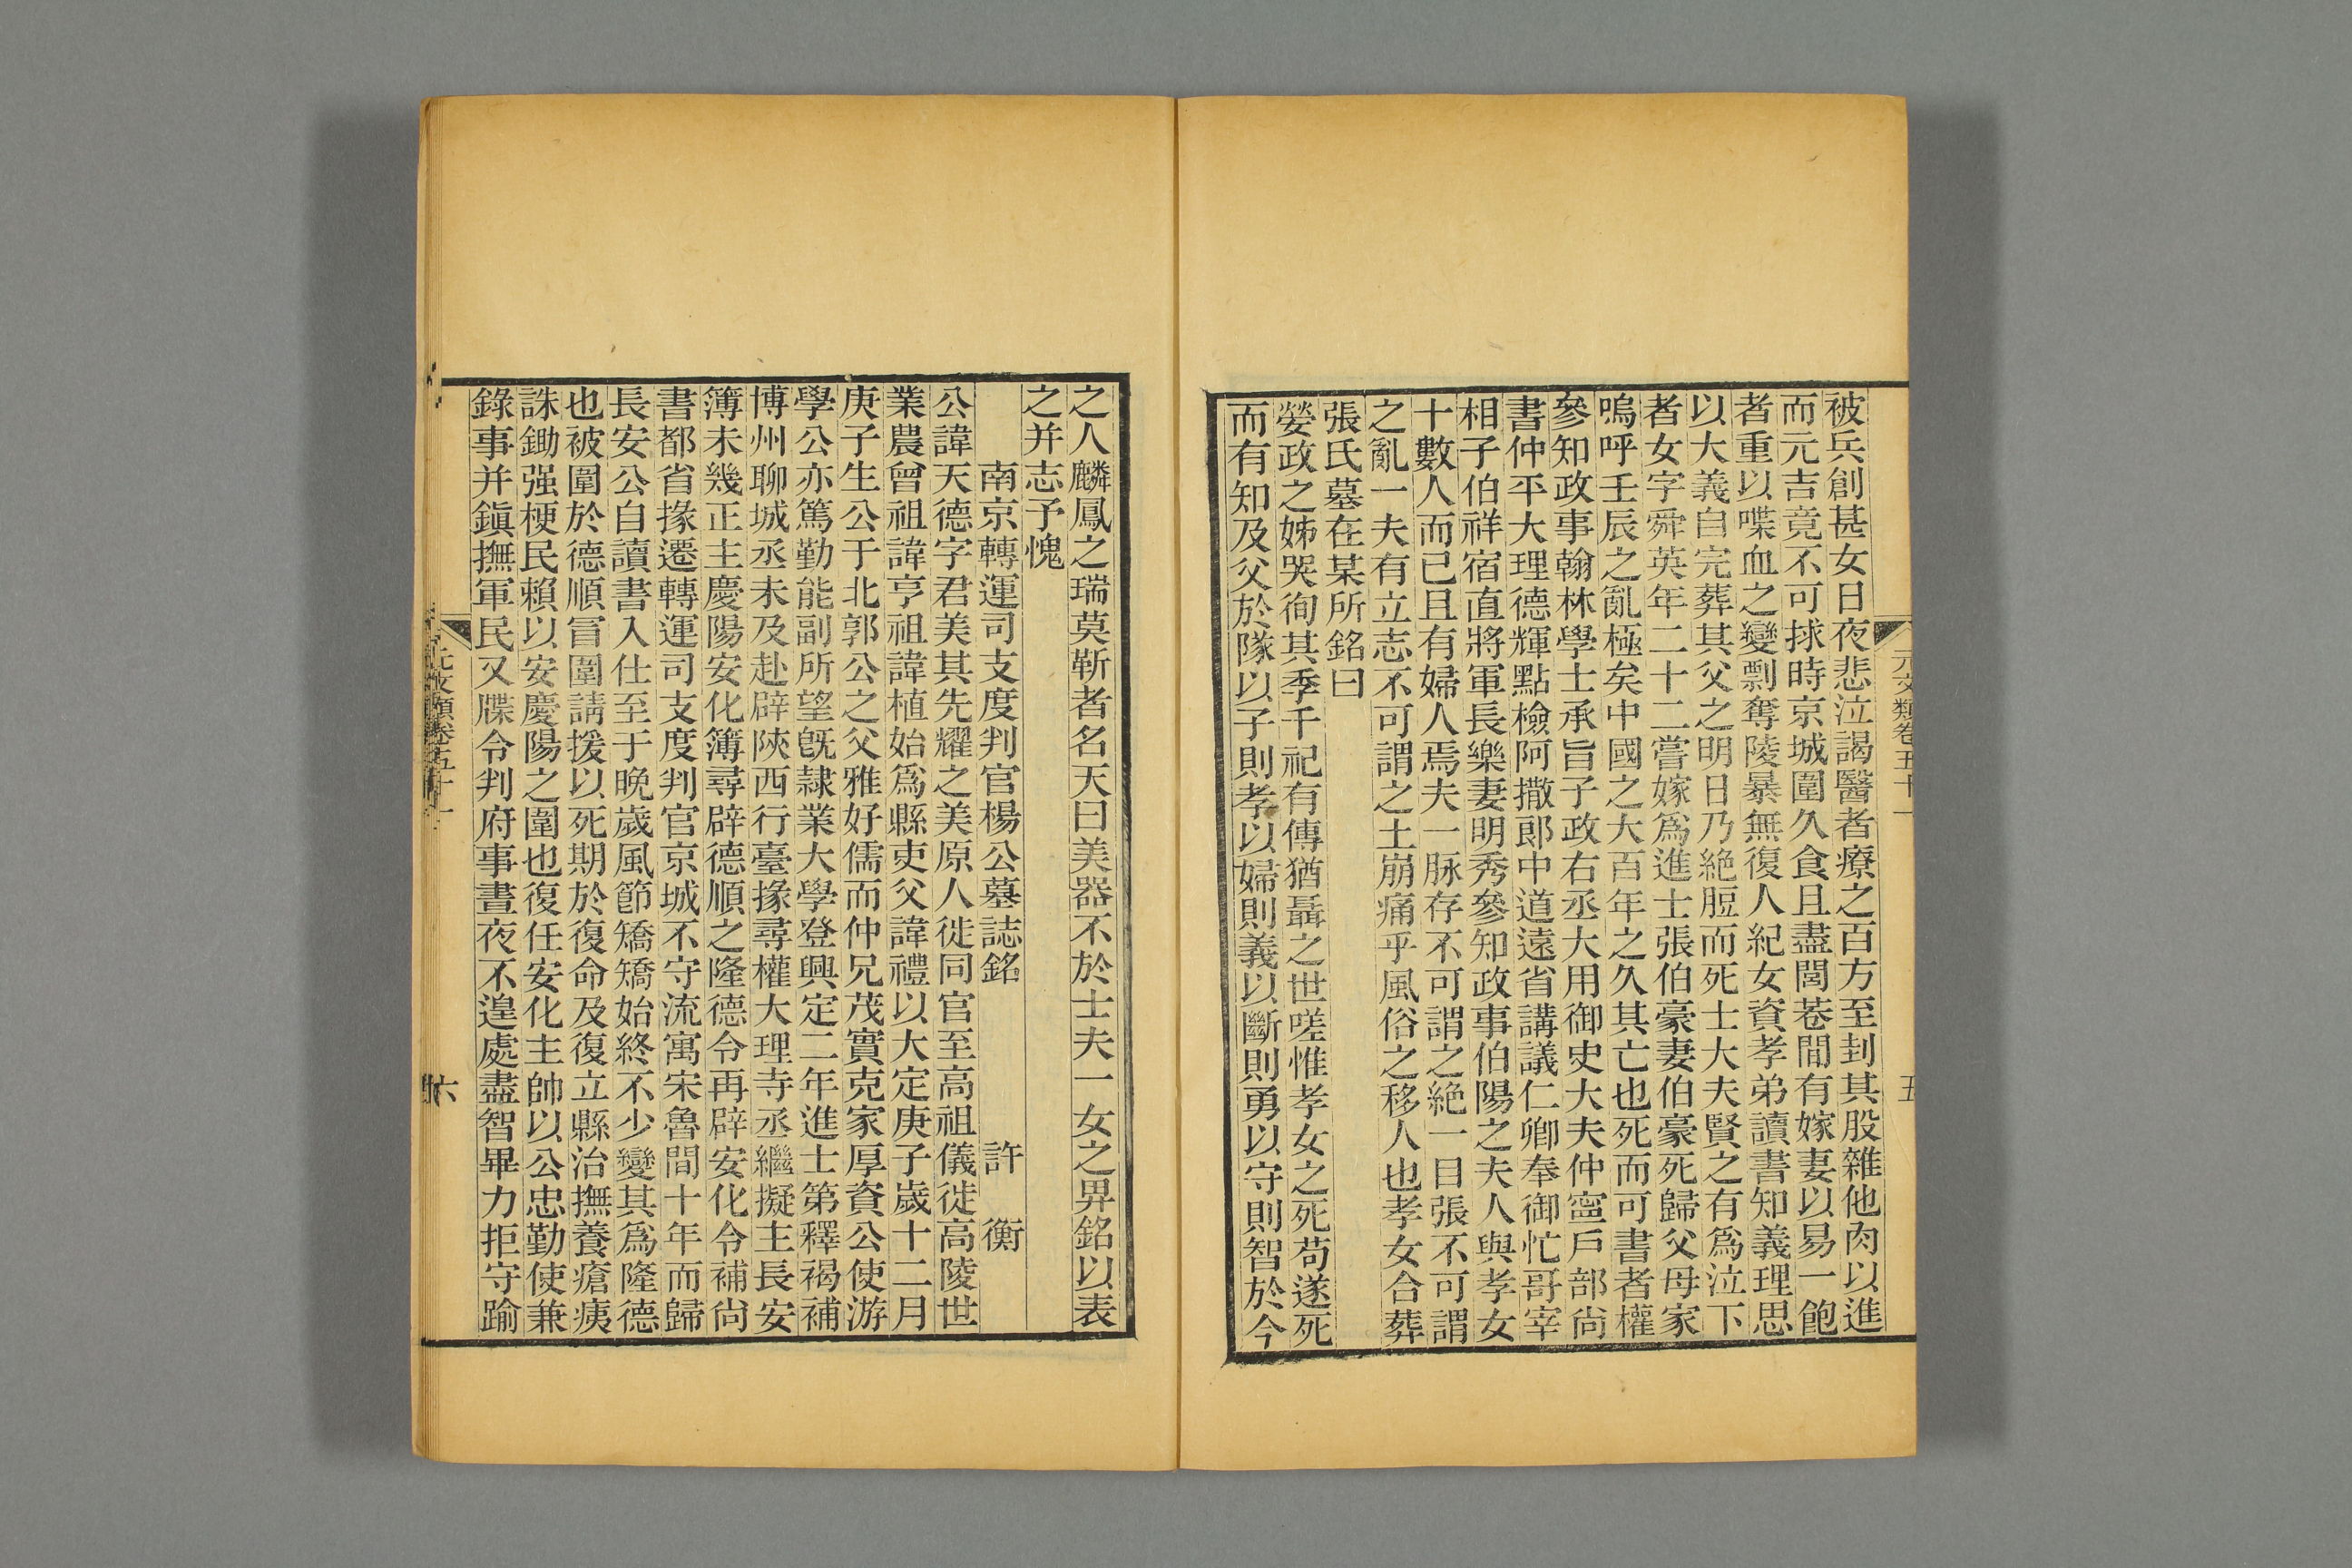 元文類卷五十一
五
被兵創甚女日夜悲泣謁醫者療之百方至刲其股雜他肉以進
而元吉竟不可捄時京城圍久食且盡閭巷間有嫁妻以易一飽
者重以喋血之變剽奪陵暴無復人紀女資孝弟讀書知義理思
以大義自完葬其父之明日乃絶脰而死士大夫賢之有爲泣下
者女字舜英年二十二嘗嫁爲進士張伯豪妻伯豪死歸父母家
嗚呼壬辰之亂極矣中國之大百年之久其亡也死而可書者權
參知政事翰林學士承旨子政右丞大用御史大夫仲寍戶部尙
書仲平大理德輝點檢阿撒郎中道遠省講議仁卿奉御忙哥宰
相子伯祥宿直將軍長樂妻明秀參知政事伯陽之夫人與孝女
十數人而已且有婦人焉夫一脉存不可謂之絶一目張不可謂
之亂一夫有立志不可謂之土崩痛乎風俗之移人也孝女合葬
張氏墓在某所銘曰
嫈政之姊哭徇其季千祀有傳猶聶之世嗟惟孝女之死苟遂死
而有知及父於隊以子則孝以婦則義以斷則勇以守則智於今
之人麟鳳之瑞莫靳者名天曰美器不於士夫一女之畀銘以表
之并志予愧
南京轉運司支度判官楊公墓誌銘 許 衡
公諱天德字君美其先耀之美原人徙同官至高祖儀徙高陵世
業農曾祖諱亨祖諱植始爲縣吏父諱禮以大定庚子歲十二月
庚子生公于北郭公之父雅好儒而仲兄茂實克家厚資公使游
學公亦篤勤能副所望旣隷業大學登興定二年進士第釋褐補
博州聊城丞未及赴辟陝西行臺掾尋權大理寺丞繼擬主長安
簿未幾正主慶陽安化簿尋辟德順之隆德令再辟安化令補尙
書都省掾遷轉運司支度判官京城不守流寓宋魯間十年而歸
長安公自讀書入仕至于晩歲風節矯矯始終不少變其爲隆德
也被圍於德順冒圍請援以死期於復命及復立縣治撫養瘡痍
誅鋤强梗民賴以安慶陽之圍也復任安化主帥以公忠勤使兼
錄事并鎭撫軍民又牒令判府事晝夜不遑處盡智畢力拒守踰
元文類卷五十一
六